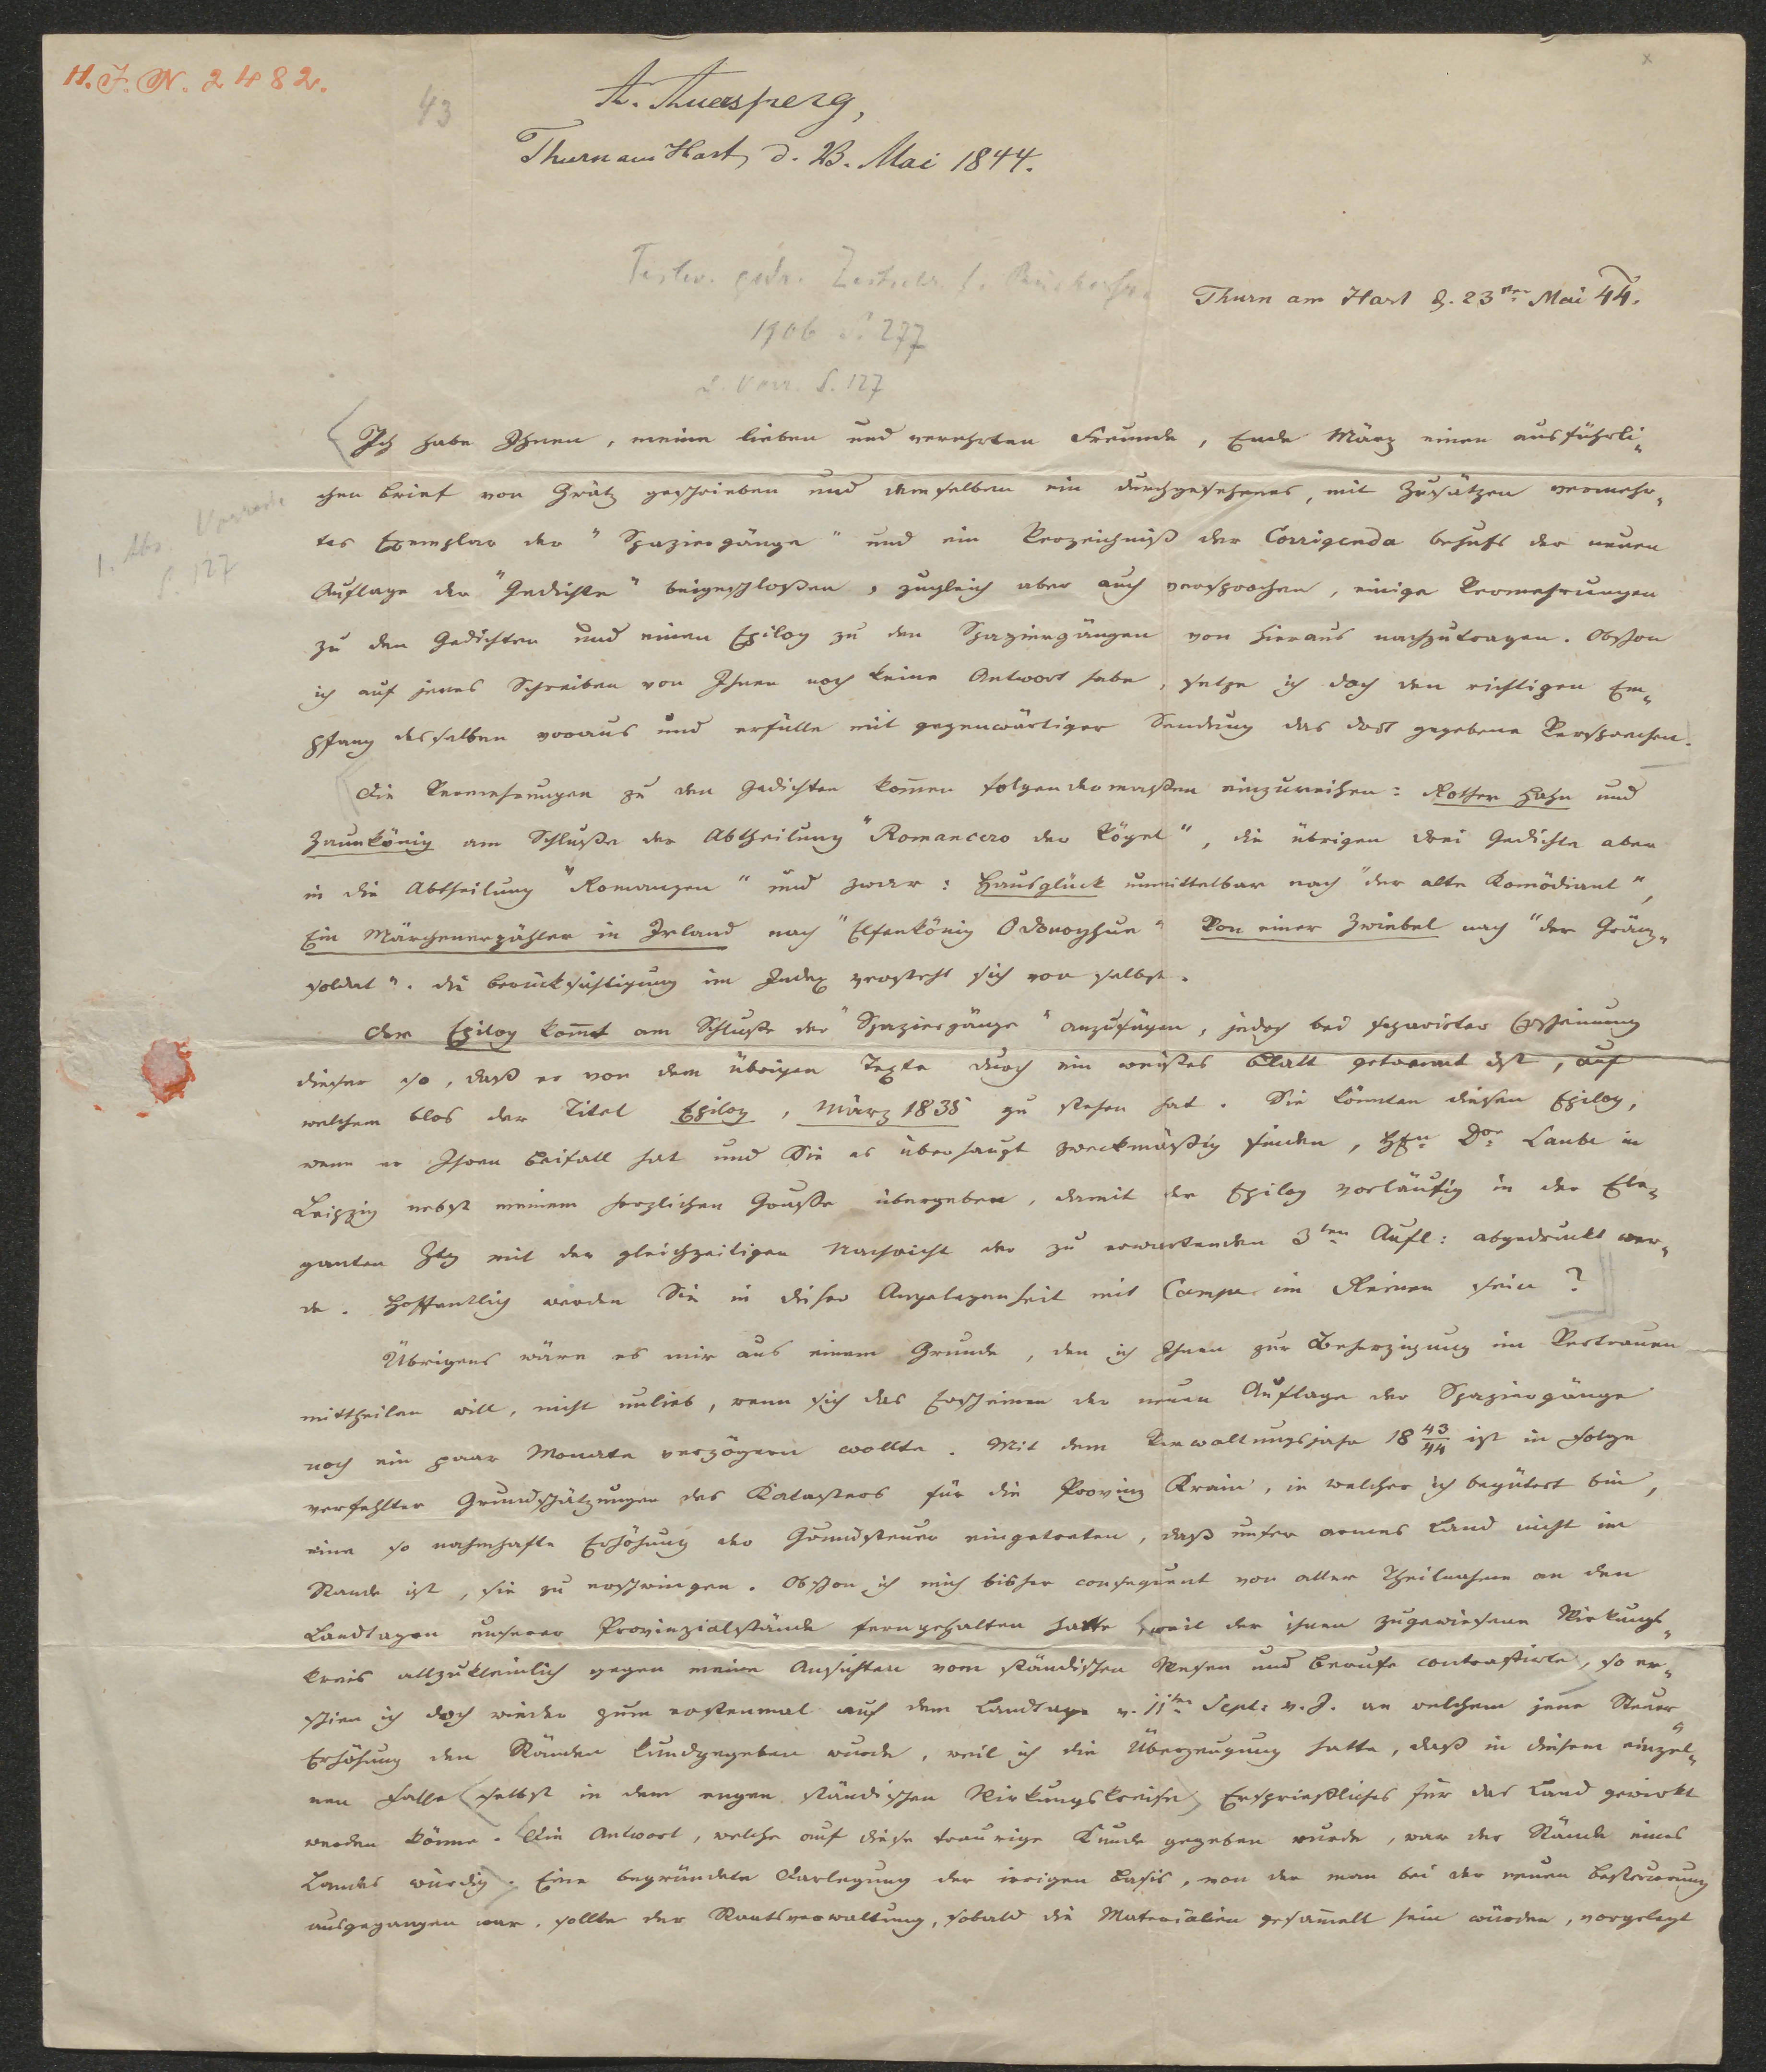 H. I. N. 2482.
43
A. Auersperg,
Thurn am Hart, d. 23. Mai 1844.
Teilw. gedr. Zeitschr. f. Bücherfr.
1906 S. 277
Thurn am Hart d. 23ten Mai 44.
1. Abs. Vorrede
S. 127
S. 127
Ich habe Ihnen, meine lieben und verehrten Freunde, Ende März einen ausführli-
chen Brief von Grätz geschrieben und demselben ein durchgesehenes, mit Zusätzen vermehr-
tes Exemplar der "Spaziergänge" und ein Verzeichniß der Corrigenda behufs der neuen
Auflage der "Gedichte" beigeschloßen, zugleich aber auch versprochen, einige Vermehrungen
zu den Gedichten und einen Epilog zu den Spaziergängen von hieraus nachzutragen. Obschon
ich auf jenes Schreiben von Ihnen noch keine Antwort habe, setze ich doch den richtigen Em-
pfang desselben voraus und erfülle mit gegenwärtiger Sendung das dort gegebene Versprechen.
Die Vermehrungen zu den Gedichten kom̄en folgendermaßen einzureihen: Rother Hahn und
Zaunkönig am Schluße der Abtheilung "Romancero der Vögel", die übrigen drei Gedichte aber
in die Abtheilung "Romanzen" und zwar: Hausglück unmittelbar nach "der alte Komödiant",
Ein Märchenerzähler in Irland nach "Elfenkönig O'Donoghue" Von einer Zwiebel nach "der Gränz-
soldat". Die Berücksichtigung im Index versteht sich von selbst.
Der Epilog kom̄t am Schluße der "Spaziergänge" anzufügen, jedoch bei separirter Erscheinung
dieser so, daß er von dem übrigen Texte durch ein weißes Blatt getrennt ist, auf
welchem blos der Titel Epilog, März 1835 zu stehen hat. Sie könnten diesen Epilog,
wenn er Ihren Beifall hat und Sie es überhaupt zweckmäßig finden, Hrn Dor Laube in
Leipzig nebst meinem herzlichen Gruße übergeben, damit der Epilog vorläufig in der Ele-
ganten Ztg mit der gleichzeitigen Nachricht der zu erwartenden 3ten Aufl: abgedruckt wer-
de. Hoffentlich werden Sie in dieser Angelegenheit mit Campe im Reinen sein?
Übrigens wäre es mir aus einem Grunde, den ich Ihnen zur Beherzigung im Vertrauen
mittheilen will, nicht unlieb, wenn sich das Erscheinen der neuen Auflage der Spaziergänge
noch ein paar Monate verzögern wollte. Mit dem Verwaltungsjahr 18 43/44 ist in Folge
verfehlter Grundschätzungen des Katasters für die Provinz Krain, in welcher ich begütert bin,
eine so nahmhafte Erhöhung der Grundsteuer eingetreten, daß unser armes Land nicht im
Stande ist, sie zu erschwingen. Obschon ich mich bisher consequent von aller Theilnahme an den
Landtagen unserer Provinzialstände ferngehalten hatte, weil der ihnen zugewiesene Wirkungs-
kreis allzukleinlich gegen meine Ansichten vom ständischen Wesen und Berufe contrastirte, so er-
schien ich doch wieder zum erstenmal auf dem Landtage v. 11ten Sept: v. J. an welchem jene Steuer-
Erhöhung den Ständen kundgegeben wurde, weil ich die Überzeugung hatte, daß in diesem einzel-
nen Falle selbst in dem engen ständischen Wirkungskreise, Ersprießliches für das Land gewirkt
werden könne. Die Antwort, welche auf diese traurige Kunde gegeben wurde, war der Stände eines
Landes würdig. Eine begründete Darlegung der irrigen Basis, von der man bei der neuen Besteuerung
ausgegangen war, sollte der Staatsverwaltung, sobald die Materialien gesam̄elt sein würden, vorgelegt